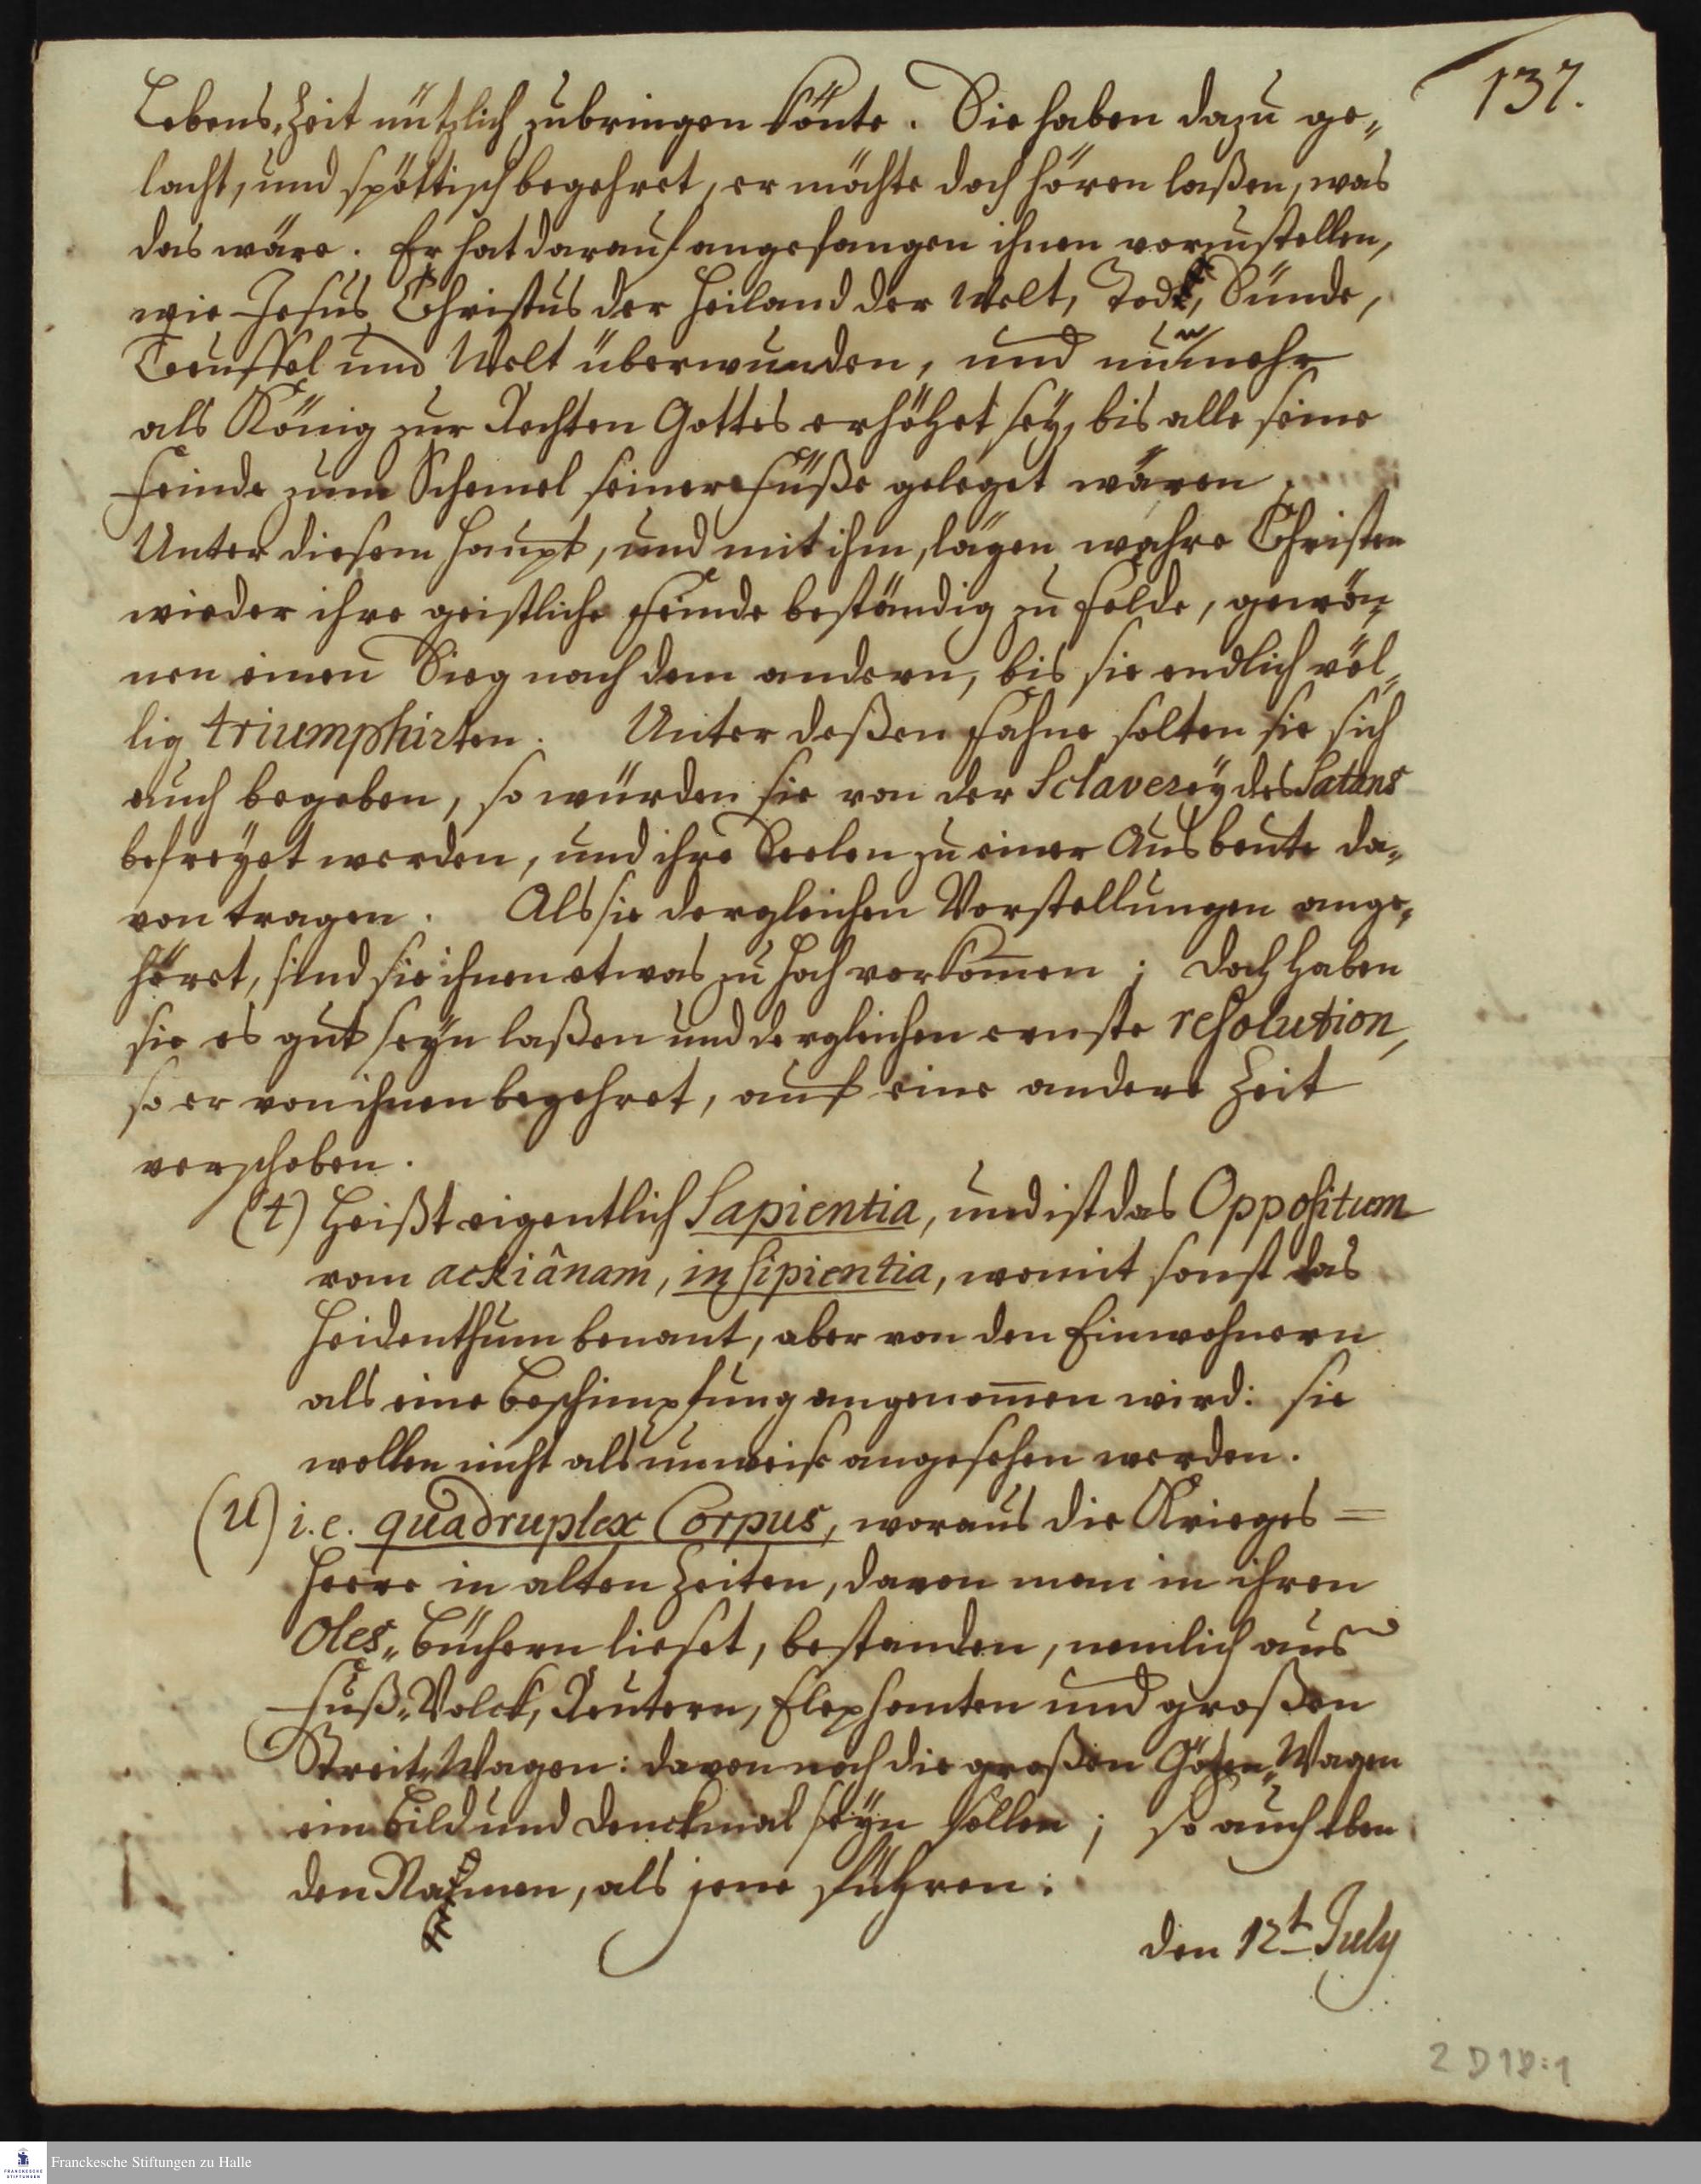 137.
Lebens-Zeit nützlich zubringen könte. Sie haben dazu ge-
lacht, und spöttisch begehret, er möchte doch hören laßen, was
das wäre. Er hat darauf angefangen ihnen vorzustellen,
wie Jesus Christus der Heiland der Welt, Tod, Sünde,
Teuffel und Welt überwunden, und nunmehr
als König zur Rechten Gottes erhöhet sey, bis alle seine
Feinde zum Schemel seiner Füße geleget wären.
Unter diesem Haupt, und mit ihm, lägen wahre Christen
wieder ihre geistliche Feinde beständig zu Felde, gewön-
nen einen Sieg nach dem andern, bis sie endlich völ-
lig triumphirten. Unter deßen Fahne solten sie sich
auch begeben, so würden sie von der Sclaverey des Satans
befreyet werden, und ihre Seelen zu einer Ausbeute da-
von tragen. Als sie dergleichen Vorstellungen ange-
höret, sind sie ihnen etwas zu hoch vorkom̄en; doch haben
sie es gut seyn laßen und dergleichen ernste resolution,
so er von ihnen begehret, auf eine andere Zeit
verschoben.
(t) Heißt eigentlich Sapientia, und ist das Oppositum
vom ackiânam, insipientia, womit sonst das
Heidenthum benant, aber von den Einwohnern
als eine Beschimpfung angenom̄en wird: sie
wollen nicht als unweise angesehen werden.
(u) i.e. quadruplex Corpus, woraus die Krieges=
Heere in alten Zeiten, davon man in ihren
Oles-Büchern lieset, bestanden, nemlich aus
Fuß-Volck, Reutern, Elephanten und großen
Streit-Wagen: davon noch die großen Götzen-Wagen
ein Bild und Denckmal seyn sollen; so auch eben
den Namen, als jene führen.
den 12t July
2 D 18:1
Franckesche Stiftungen zu Halle